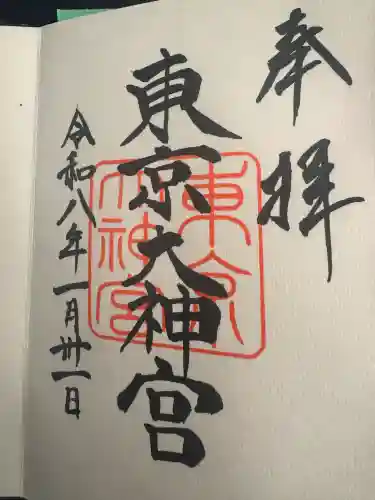 奉拝
東京大神宮
令和八年一月卅一日
東京
大神宮